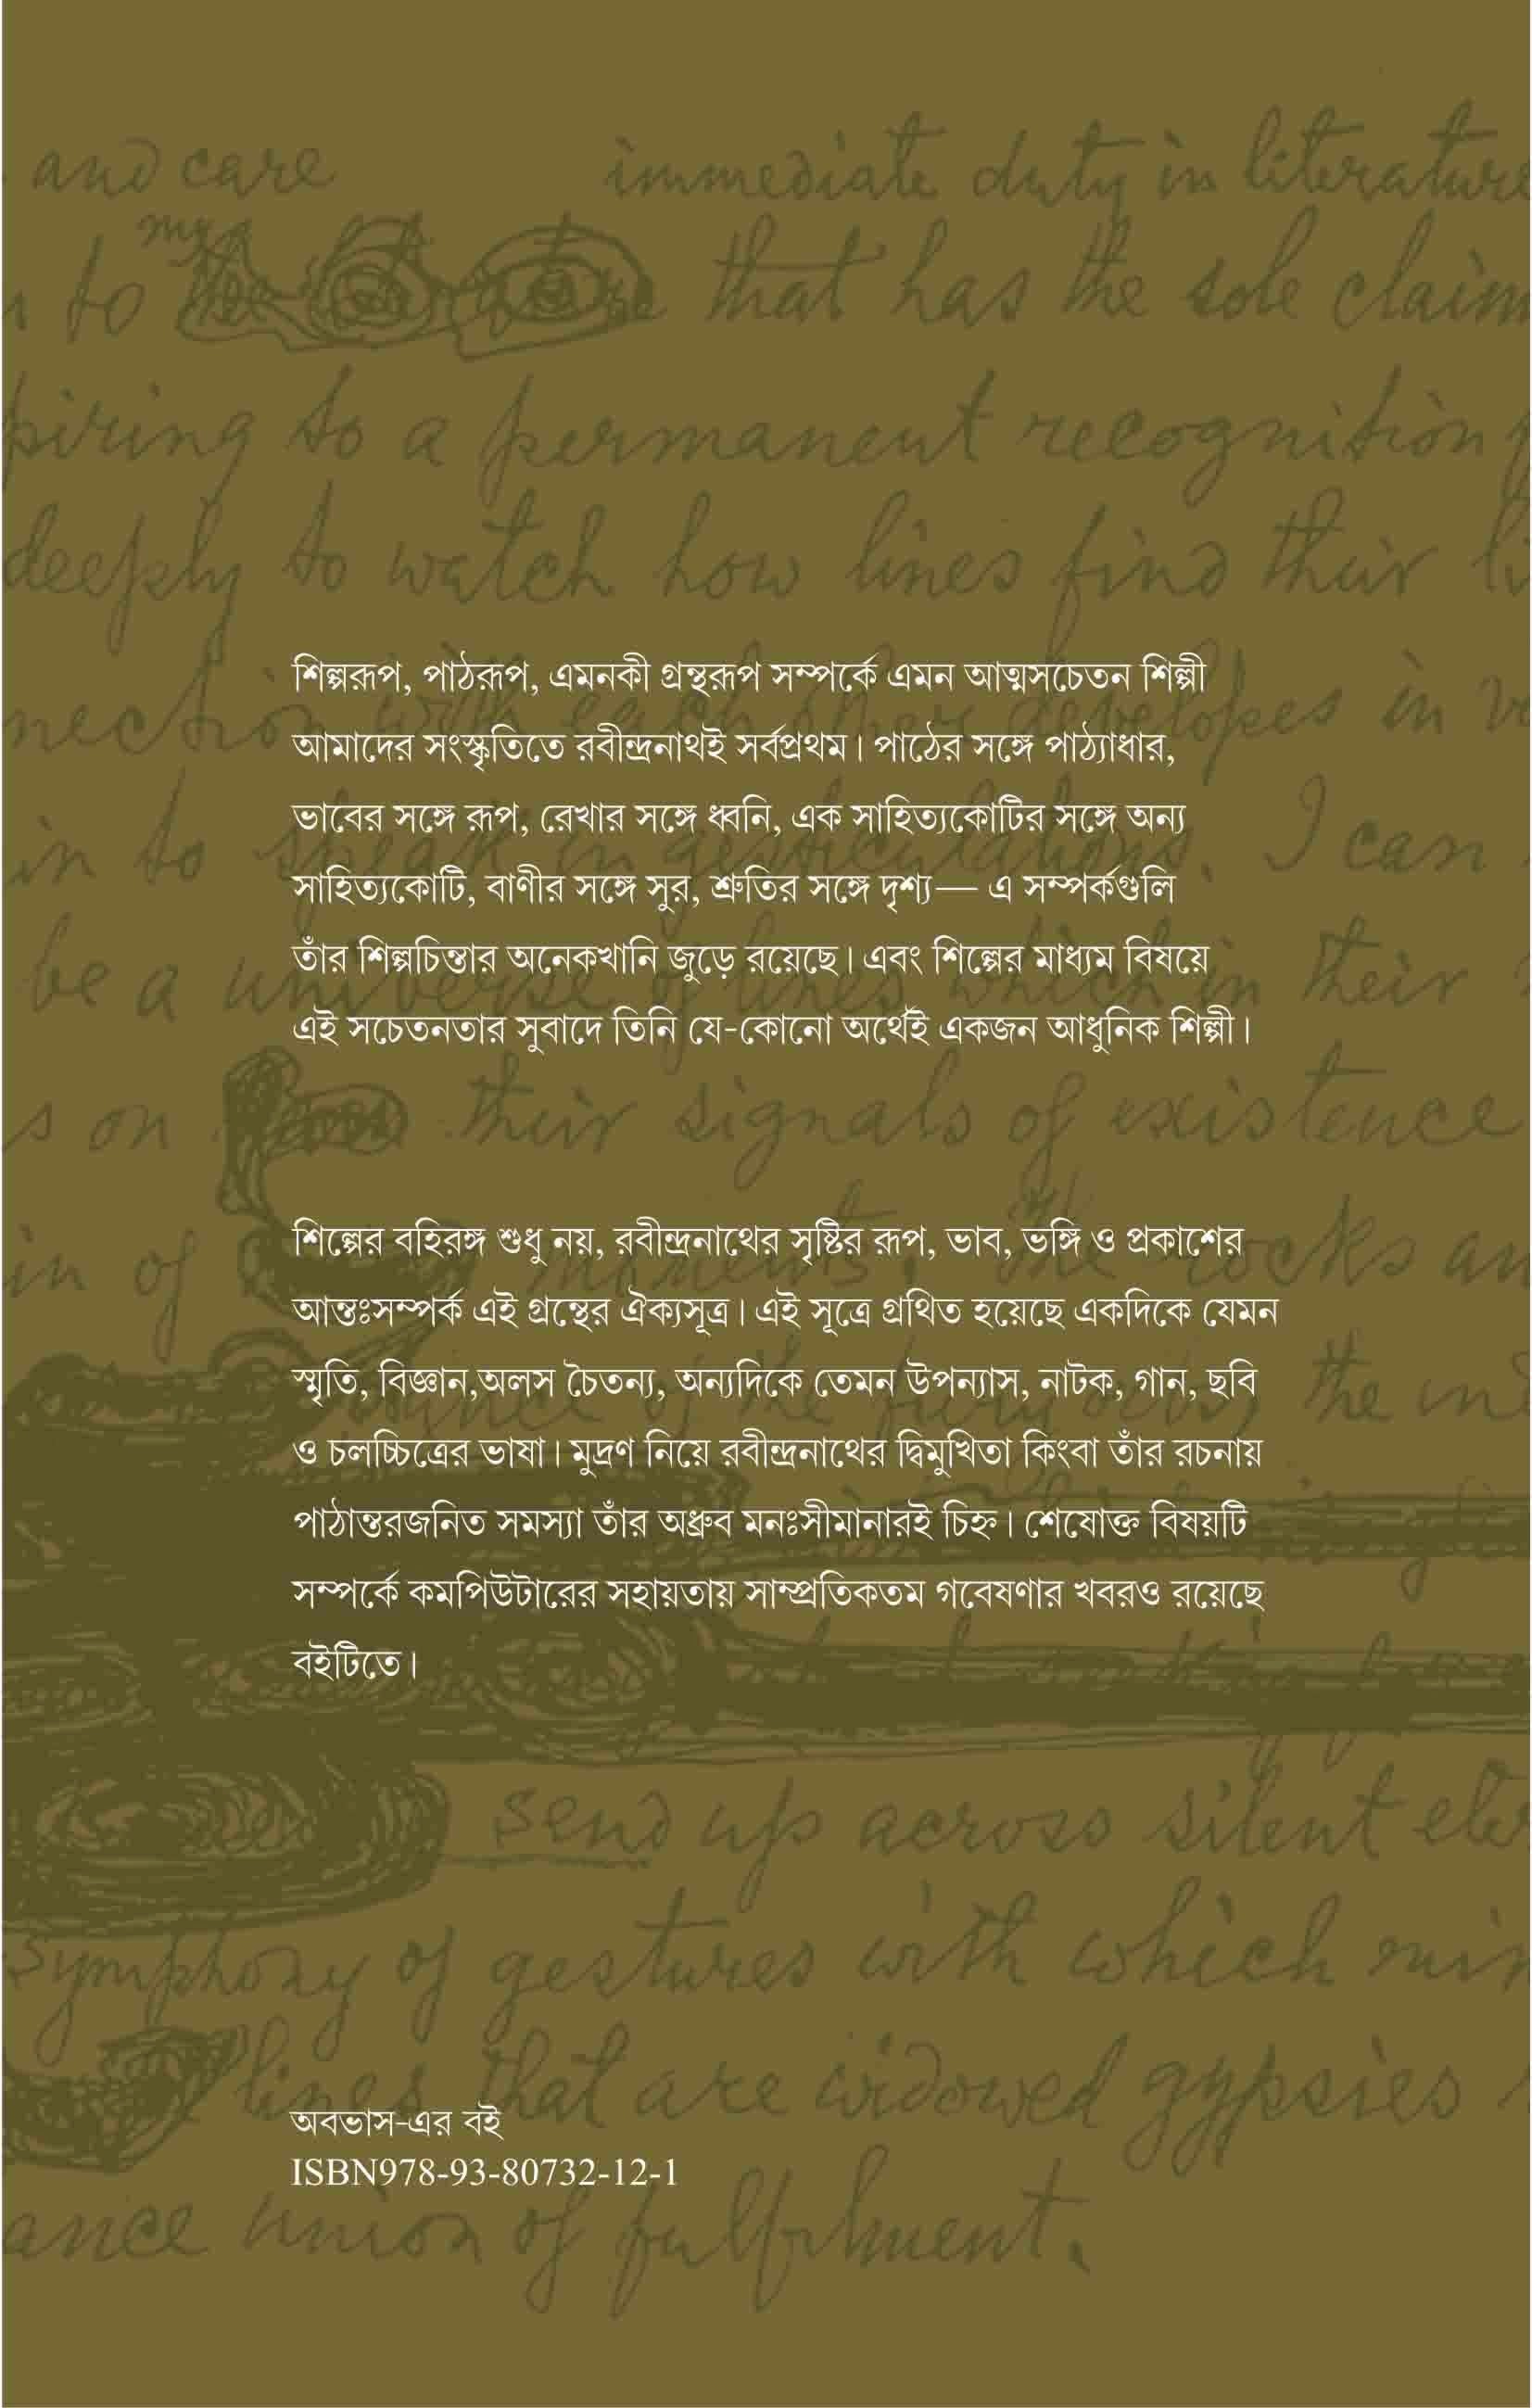 and care immediate duty in literature
to my that has the sole claim
to a permanent recognition
deeply to watch how lines find their
শিল্পরূপ, পাঠরূপ, এমনকী গ্রন্থরূপ সম্পর্কে এমন আত্মসচেতন শিল্পী
আমাদের সংস্কৃতিতে রবীন্দ্রনাথই সর্বপ্রথম। পাঠের সঙ্গে পাঠ্যাধার,
ভাবের সঙ্গে রূপ, রেখার সঙ্গে ধ্বনি, এক সাহিত্যকোটির সঙ্গে অন্য
সাহিত্যকোটি, বাণীর সঙ্গে সুর, শ্রুতির সঙ্গে দৃশ্য— এ সম্পর্কগুলি
তাঁর শিল্পচিন্তার অনেকখানি জুড়ে রয়েছে। এবং শিল্পের মাধ্যম বিষয়ে
এই সচেতনতার সুবাদে তিনি যে-কোনো অর্থেই একজন আধুনিক শিল্পী।
on their signals of existence
শিল্পের বহিরঙ্গ শুধু নয়, রবীন্দ্রনাথের সৃষ্টির রূপ, ভাব, ভঙ্গি ও প্রকাশের
আন্তঃসম্পর্ক এই গ্রন্থের ঐক্যসূত্র। এই সূত্রে গ্রথিত হয়েছে একদিকে যেমন
স্মৃতি, বিজ্ঞান,অলস চৈতন্য, অন্যদিকে তেমন উপন্যাস, নাটক, গান, ছবি
ও চলচ্চিত্রের ভাষা। মুদ্রণ নিয়ে রবীন্দ্রনাথের দ্বিমুখিতা কিংবা তাঁর রচনায়
পাঠান্তরজনিত সমস্যা তাঁর অধ্রুব মনঃসীমানারই চিহ্ন। শেষোক্ত বিষয়টি
সম্পর্কে কমপিউটারের সহায়তায় সাম্প্রতিকতম গবেষণার খবরও রয়েছে
বইটিতে।
send up across silent
symphony of gestures with which
lines that are widowed gypsies
অবভাস-এর বই
ISBN978-93-80732-12-1
union of fulfilment.